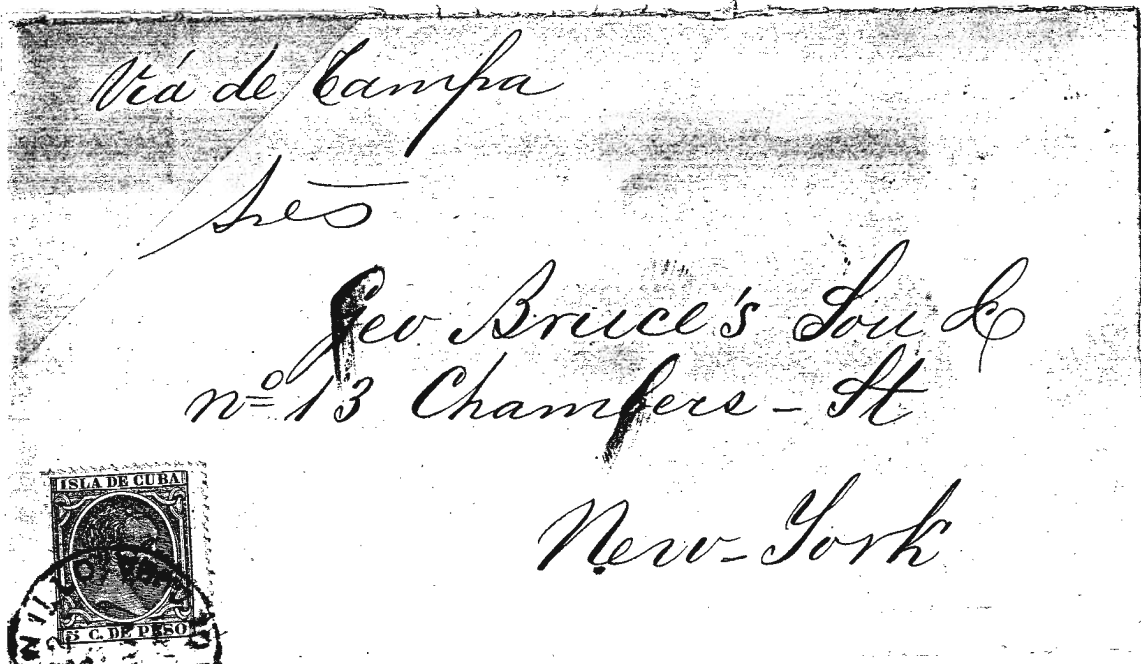 Viá de Tampa
Sres
Geo Bruce's Son & Co
nº 13 Chambers - St
New-York
ISLA DE CUBA
5 C. DE PESO